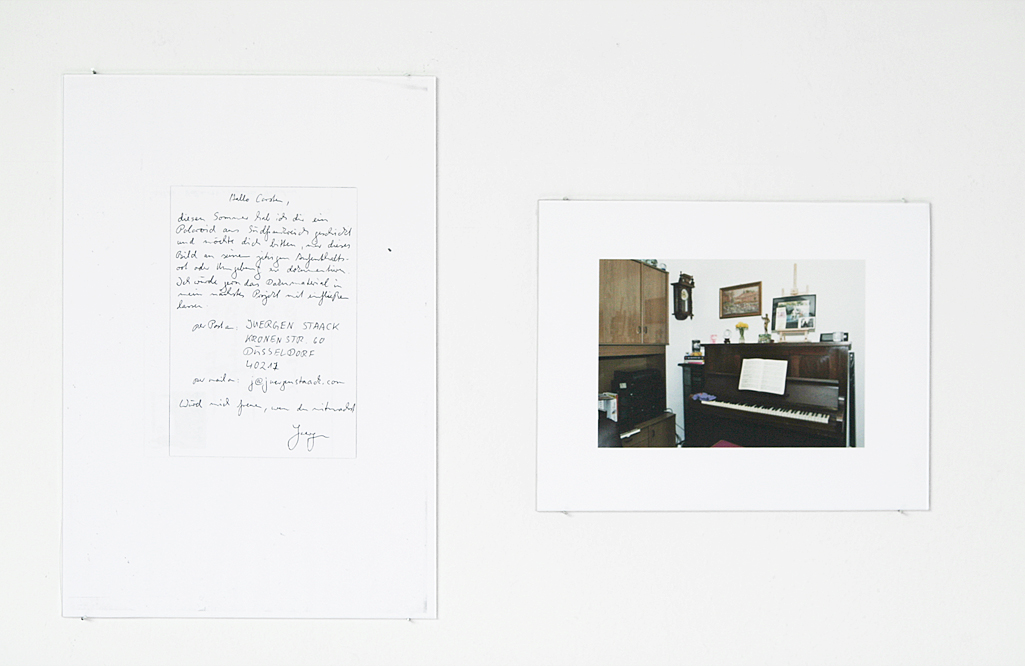 Hallo Carsten,
diesen Sommer hab ich dir ein
Polaroid aus Südfrankreich geschickt
und möchte dich bitten, mir dieses
Bild an seinem jetzigen Aufenthalts-
ort oder Umgebung zu dokumentieren.
Ich würde gern das Datenmaterial in
mein nächstes Projekt mit einfließen
lassen.
per Post a: JUERGEN STAACK
KRONENSTR. 60
DÜSSELDORF
40217
per mail a: j@juergenstaack.com
Würd mich freuen, wenn du mitmachst
Juergen